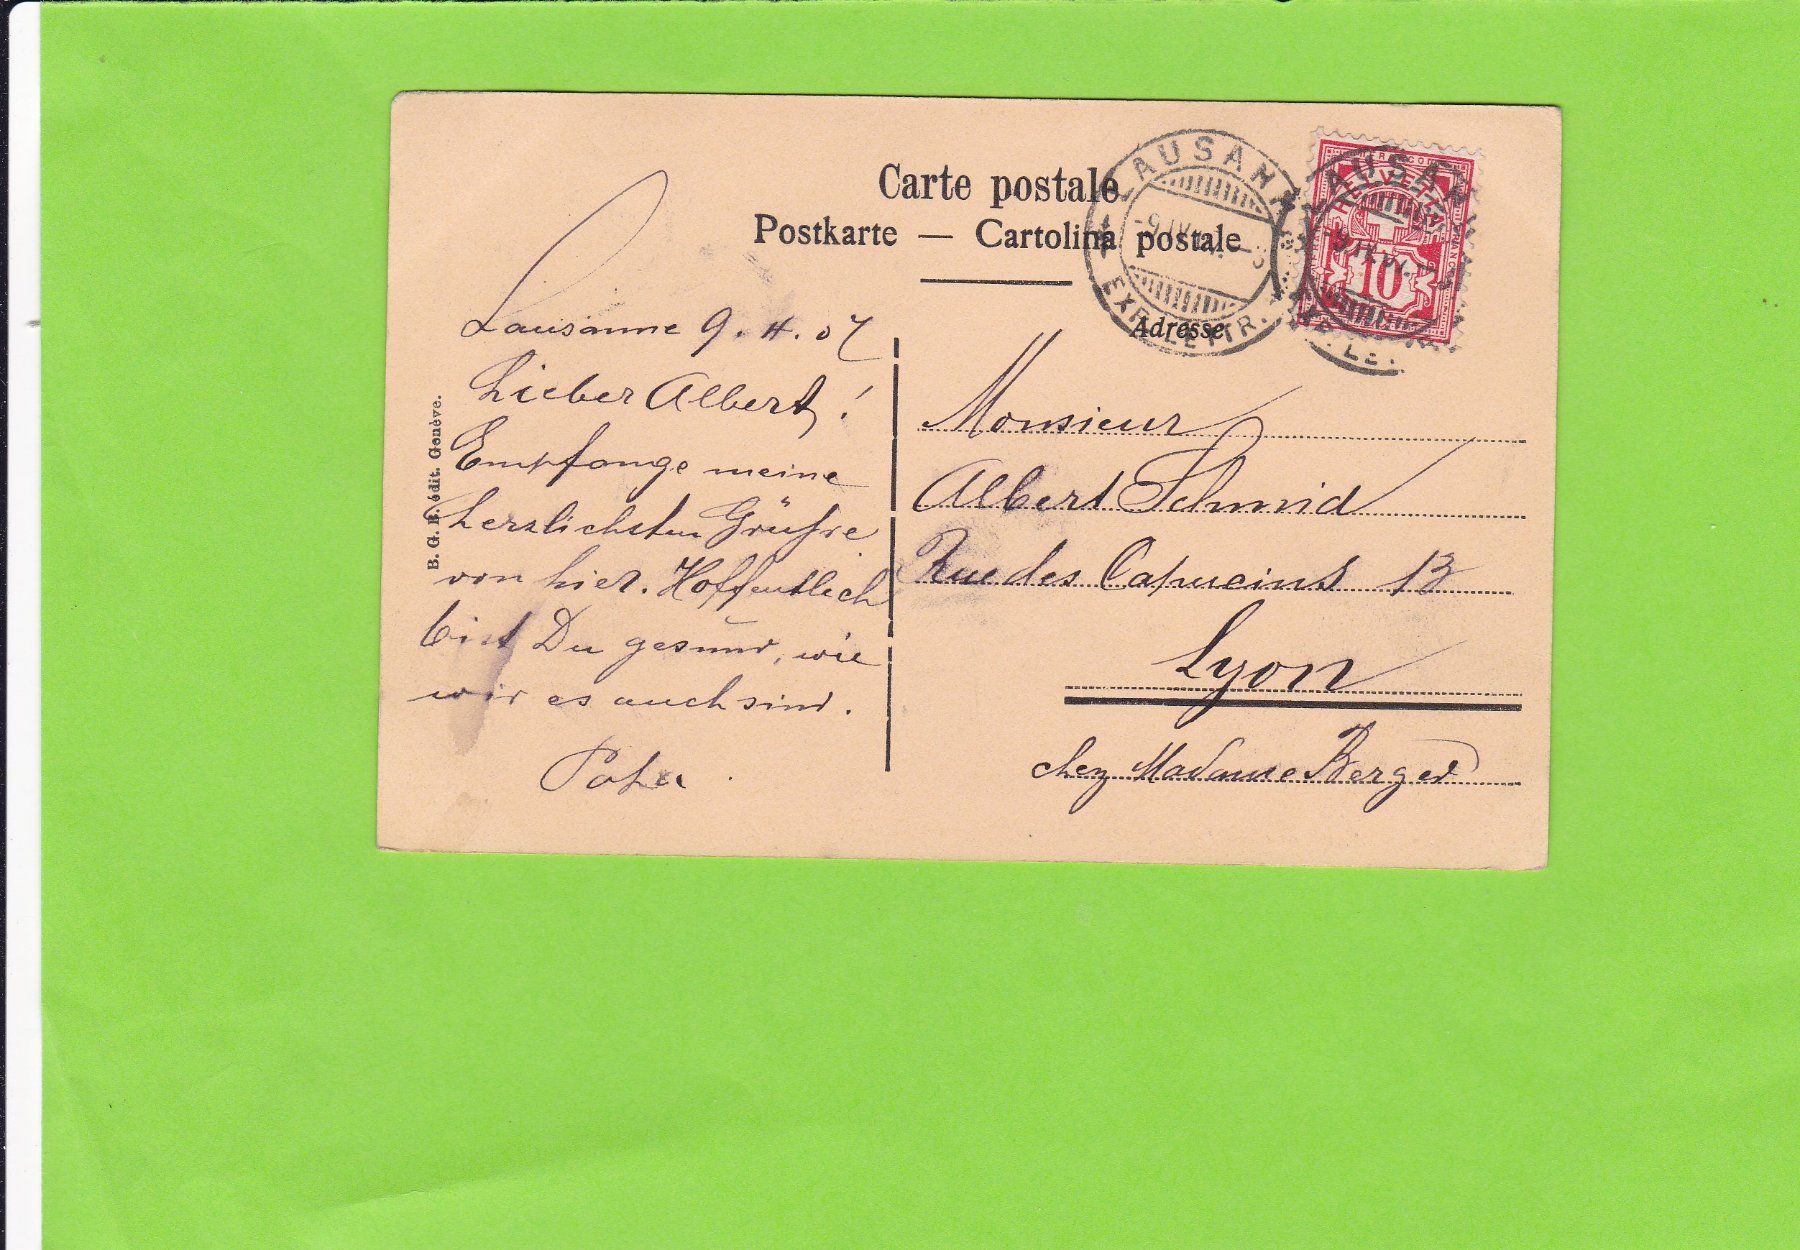 Carte postale
Postkarte — Cartolina postale
Adresse
LAUSANN
EXP. LETTR.
HELVETIA
10
B. G. B. édit. Genève.
Lausanne 9. 4. 07
Lieber Albert!
Empfange meine
herzlichsten Grüsse
von hier. Hoffentlich
bist Du gesund, wie
wir es auch sind.
Monsieur
Albert Schmid
Rue des Capucins 13
Lyon
chez Madame Berger